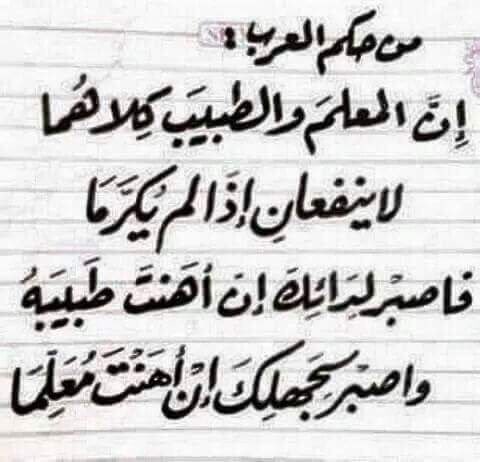 من حكم العرب :
إِنَّ المعلمَ والطبيبَ كِلاهُما
لا ينفعانِ إِذَا لم يُكَرَّمَا
فاصبرْ لِدَائِكَ إن أَهَنتَ طَبِيبَهُ
واصبْر لجَهلِكَ إنْ أَهَنْتَ مُعَلِّمَا